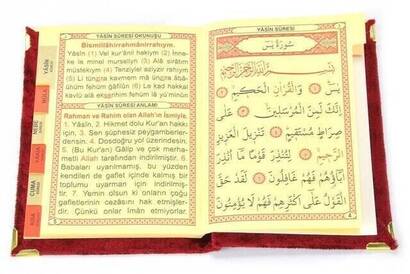 YÂSİN SÛRESİ OKUNUŞU
Bismillâhirrahmânirrahiym.
Yâsiin (1) Vel kur'ânil hakiym (2) İnne-
ke le minel murseliyn (3) Alâ sırâtım
müstekiym (4) Tenziylel aziyzir rahıym
(5) Li tünzira kavmem mâ ünzira âbâ-
ühüm fehüm ğâfilûn (6) Le kad hakkal
kavlü alâ ekserihim fehüm lâ yü'minûn
YÂSİN SÛRESİ ANLAMI
Rahman ve Rahim olan Allah'ın ismiyle.
1. Yâsin, 2. Hikmet dolu Kur'an hakkı
için, 3. Sen şüphesiz peygamberler-
densin. 4. Dosdoğru yol üzerindesin.
5. (Bu Kur'an) Gâlip ve çok merha-
metli Allah tarafından indirilmiştir. 6.
Babaları uyarılmamış, bu yüzden
kendileri de gaflet içinde kalmış bir
toplumu uyarman için indirilmiş-
tir. 7. Yemin olsun ki onların çoğu
gafletlerinin cezâsını hak etmişler-
dir. Çünkü onlar îman etmiyorlar.
YÂSİN SÛRESİ
سُورَةُ يٰسٓ
بِسْمِ اللّٰهِ الرَّحْمٰنِ الرَّحِيمِ
يٰسٓ ﴿١﴾ وَالْقُرْاٰنِ الْحَكِيمِ ﴿٢﴾
اِنَّكَ لَمِنَ الْمُرْسَلِينَ ﴿٣﴾ عَلٰى
صِرَاطٍ مُسْتَقِيمٍ ﴿٤﴾ تَنْزِيلَ الْعَزِيزِ
الرَّحِيمِ ﴿٥﴾ لِتُنْذِرَ قَوْمًا مَٓا اُنْذِرَ
اٰبَٓاؤُهُمْ فَهُمْ غَافِلُونَ ﴿٦﴾ لَقَدْ حَقَّ
الْقَوْلُ عَلٰٓى اَكْثَرِهِمْ فَهُمْ لَا يُؤْمِنُونَ
4
YÂSİN
CUMA